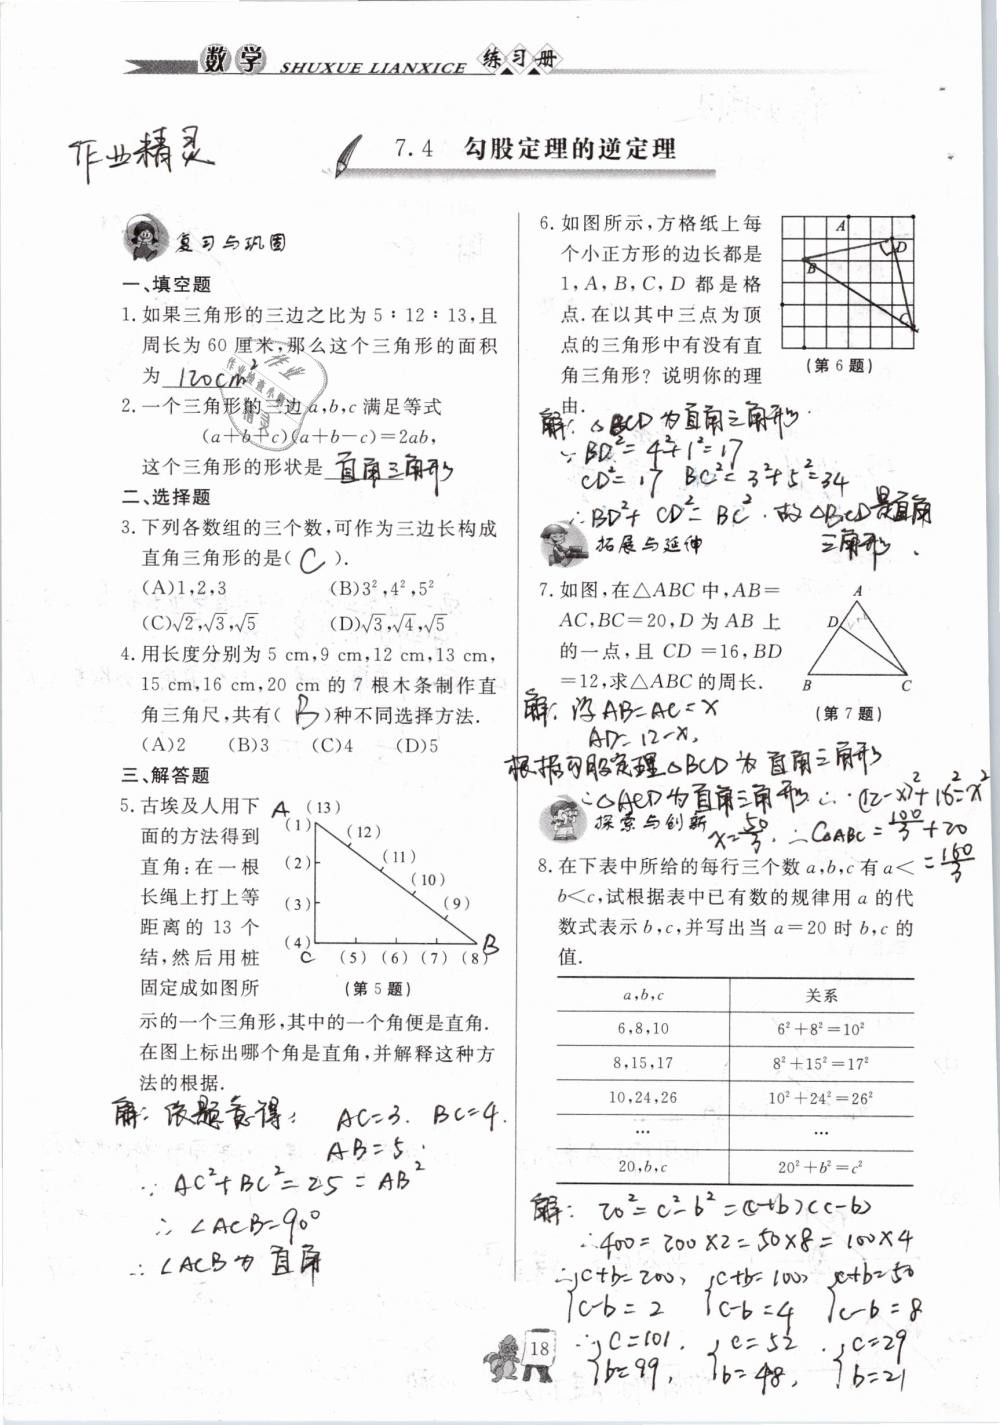 数学 SHUXUE LIANXICE 练习册
作业精灵
7.4 勾股定理的逆定理
复习与巩固
一、填空题
1. 如果三角形的三边之比为 5∶12∶13,且
周长为 60 厘米,那么这个三角形的面积
为 120cm²
2. 一个三角形的三边 a,b,c 满足等式
(a+b+c)(a+b-c)=2ab,
这个三角形的形状是 直角三角形
二、选择题
3. 下列各数组的三个数,可作为三边长构成
直角三角形的是( C ).
(A)1,2,3 (B)3²,4²,5²
(C)√2,√3,√5 (D)√3,√4,√5
4. 用长度分别为 5 cm,9 cm,12 cm,13 cm,
15 cm,16 cm,20 cm 的 7 根木条制作直
角三角尺,共有( B )种不同选择方法.
(A)2 (B)3 (C)4 (D)5
三、解答题
5. 古埃及人用下
面的方法得到
直角:在一根
长绳上打上等
距离的 13 个
结,然后用桩
固定成如图所
A (13)
(1) (12)
(2) (11)
(10)
(3) (9)
(4)
C (5) (6) (7) (8) B
(第 5 题)
示的一个三角形,其中的一个角便是直角.
在图上标出哪个角是直角,并解释这种方
法的根据.
解: 依题意得: AC=3. BC=4.
AB=5.
∵ AC²+BC²=25=AB²
∴ ∠ACB=90°
∴ ∠ACB为直角
6. 如图所示,方格纸上每
个小正方形的边长都是
1,A,B,C,D 都是格
点.在以其中三点为顶
点的三角形中有没有直
角三角形?说明你的理
由.
A
B
D
C
(第 6 题)
解: △BCD为直角三角形
∵ BD²=4²+1²=17
CD²=17 BC²=3²+5²=34
∴ BD²+CD²=BC². 故△BCD是直角
三角形.
拓展与延伸
7. 如图,在△ABC 中,AB=
AC,BC=20,D 为 AB 上
的一点,且 CD =16,BD
=12,求△ABC 的周长.
A
D
B C
(第 7 题)
解: 设AB=AC=x
AD=12-x,
根据勾股定理△BCD为直角三角形
∴△ACD为直角三角形 ∴ (12-x)²+16²=x²
x=50/3. ∴C△ABC=100/3+20
=160/3
探索与创新
8. 在下表中所给的每行三个数 a,b,c 有 a<
b<c,试根据表中已有数的规律用 a 的代
数式表示 b,c,并写出当 a=20 时 b,c 的
值.
a,b,c 关系
6,8,10 6²+8²=10²
8,15,17 8²+15²=17²
10,24,26 10²+24²=26²
… …
20,b,c 20²+b²=c²
解: 20²=c²-b²=(c+b)(c-b)
∴400=200×2=50×8=100×4
∴ {c+b=200, {c+b=100, {c+b=50
{c-b=2 {c-b=4 {c-b=8
∴ {c=101, {c=52 {c=29
{b=99, {b=48, {b=21
18